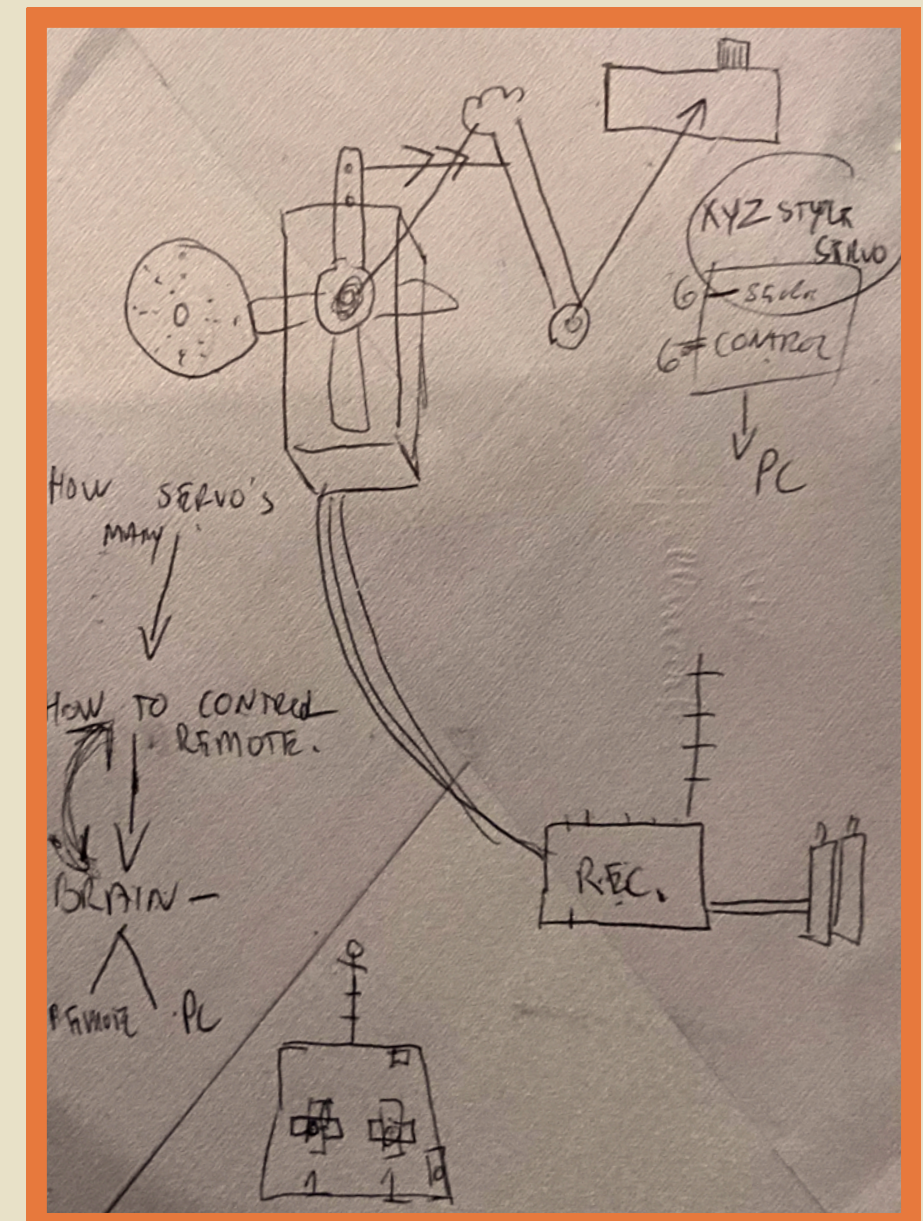 XYZ STYLE
SERVO
6 - SERVO
6 = CONTROL
PC
HOW SERVO'S
MANY
HOW TO CONTROL
REMOTE.
BRAIN -
REMOTE PC
REC.
1 1